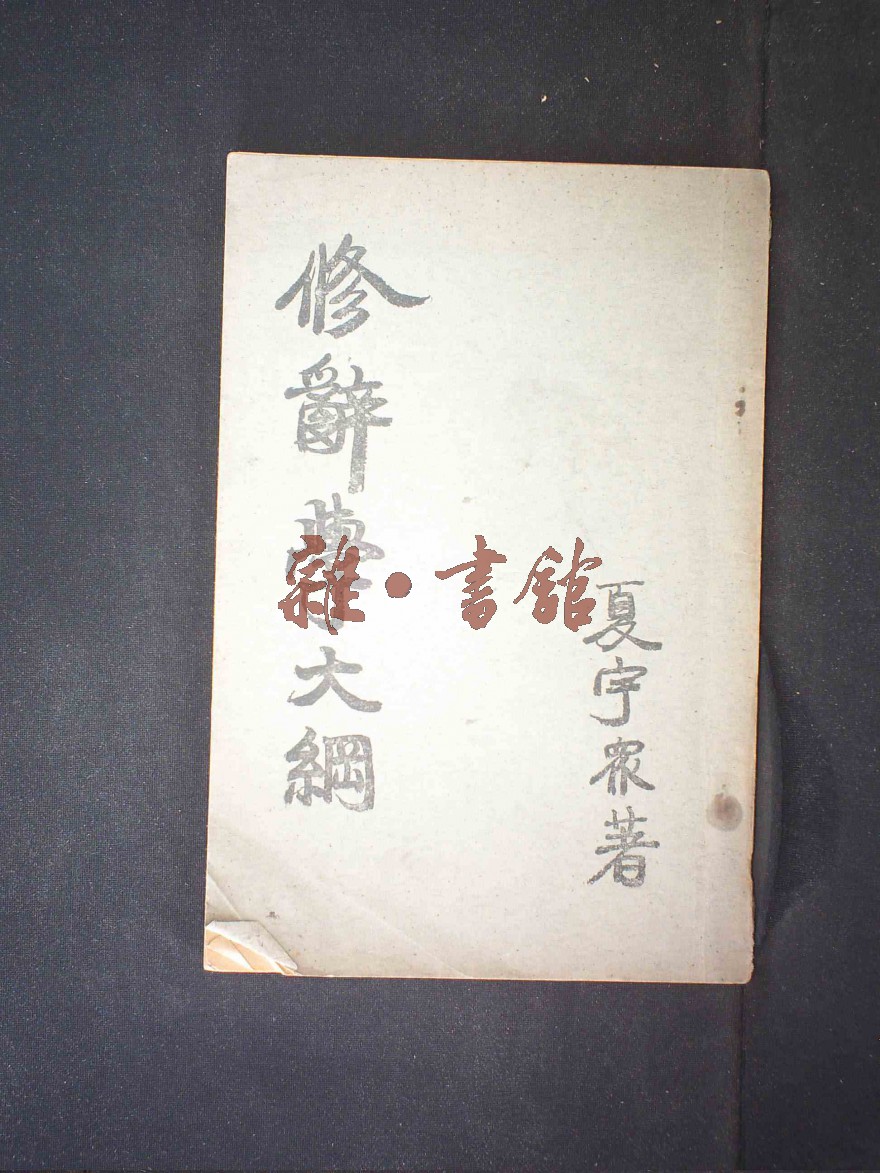 夏宇衆著
修辭學大綱
雜·書館